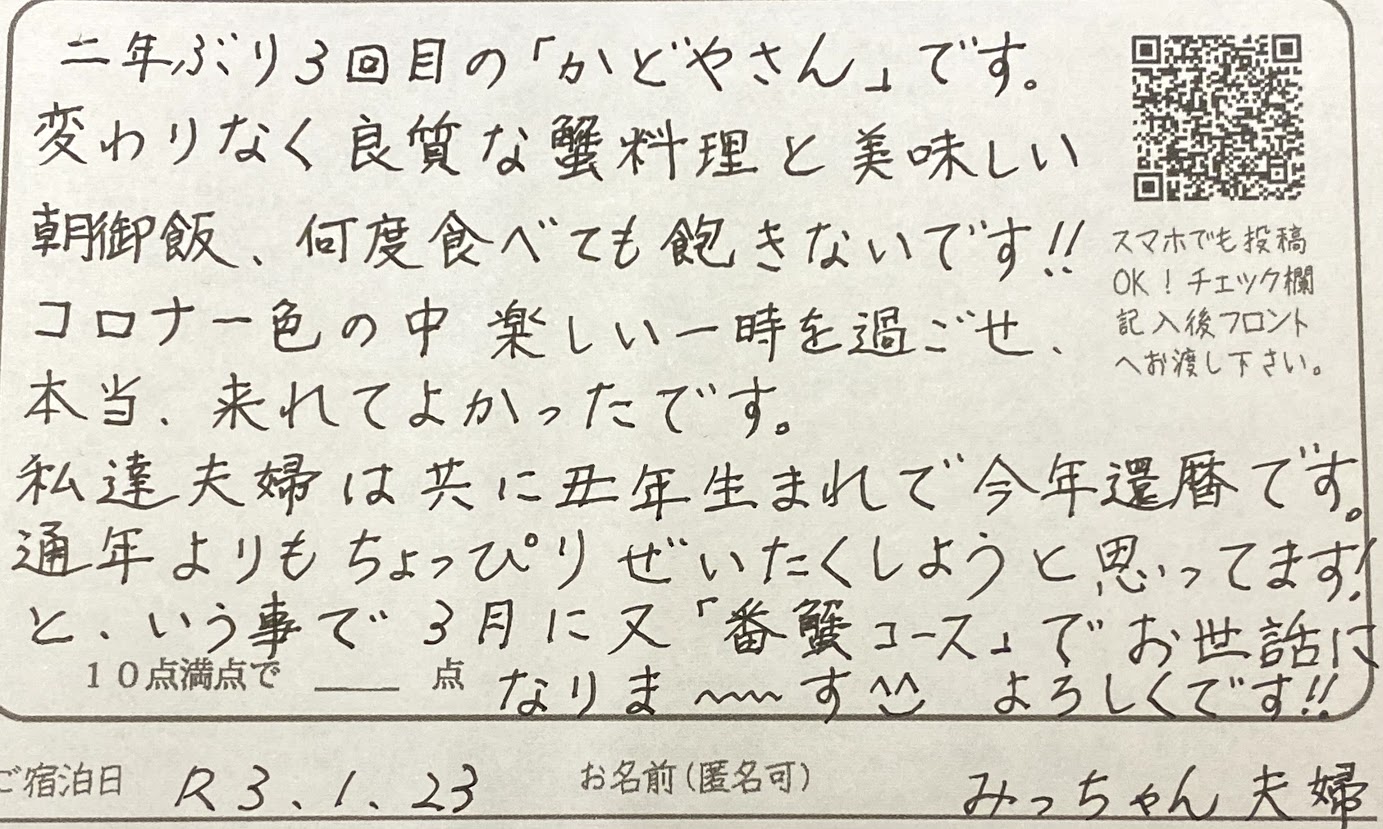 二年ぶり3回目の「かどやさん」です。
変わりなく良質な蟹料理と美味しい
朝御飯、何度食べても飽きないです!!
コロナ一色の中 楽しい一時を過ごせ、
本当、来れてよかったです。
私達夫婦は共に丑年生まれで今年還暦です。
通年よりもちょっぴりぜいたくしようと思ってます!
と、いう事で3月に又「番蟹コース」でお世話に
なりま〜〜〜す^^ よろしくです!!
スマホでも投稿
OK!チェック欄
記入後フロント
へお渡し下さい。
10点満点で ___ 点
ご宿泊日 R3.1.23 お名前(匿名可) みっちゃん夫婦